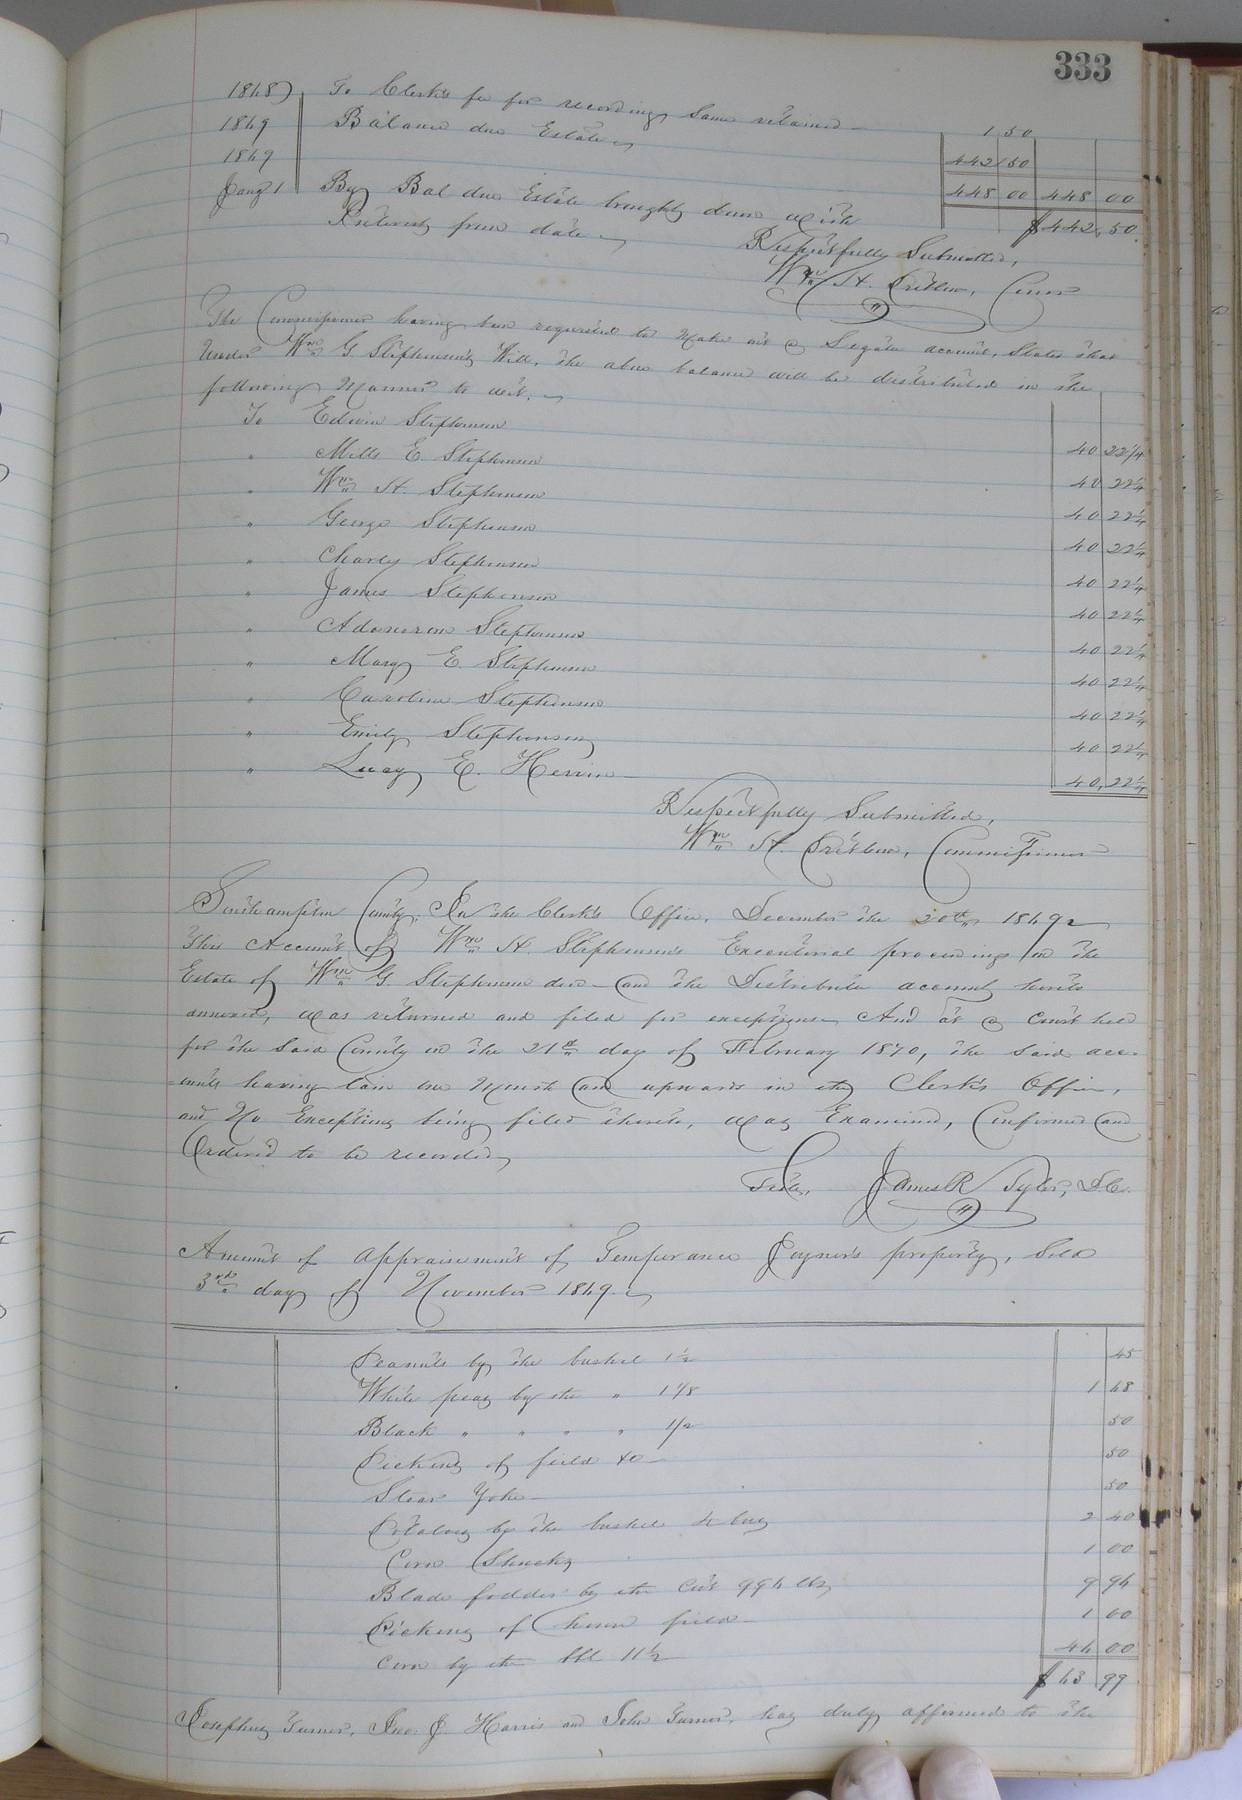 333
1868) To Clerk's fee for recording same retained 1 50
1869 Balance due Estate 442 50
1869 448 00 448 00
Jany 1 By Bal due Estate brought down with $442,50
Interest from date
Respectfully Submitted,
Wm H. Com
The Commissioner having been required to make out a Legatee account, States that
Under Wm G Stephenson's Will, the above balance will be distributed in the
following Manner to wit.
To Edwin Stephenson 40 22 1/4
" Mills E. Stephenson 40 22 1/4
" Wm H. Stephenson 40 22 1/4
" George Stephenson 40 22 1/4
" Charles Stephenson 40 22 1/4
" James Stephenson 40 22 1/4
" Adoniram Stephenson 40 22 1/4
" Mary E. Stephenson 40 22 1/4
" Caroline Stephenson 40 22 1/4
" Emily Stephenson 40 22 1/4
" Lucy E. 40,22 1/4
Respectfully Submitted,
Wm H. Commissioner
Southampton County; In the Clerk's Office, December the 20th 1869
This Account of Wm H. Stephenson's Executorial proceedings on the
Estate of Wm G. Stephenson decd and the Distributee account hereto
annexed, was returned and filed for exceptions And at a Court held
for the said County on the 21st day of February 1870, the said acc-
ounts having lain one Month and upwards in the Clerk's Office,
and No Exceptions being filed thereto, was Examined, Confirmed and
Ordered to be recorded
Teste, James R Tyler, D.C.
Amount of Appraisement of Temperance Joyner's property, Sold
3rd day of November 1869.
Peanuts by the bushel 1 1/2 45
White peas by the " 1 1/8 1 68
Black " " " " 1/2 50
Picking of field &c 50
Steer Yoke 50
Potatoes by the bushel 4 2 40
Corn Shucks 1 00
Blade fodder by the cwt 994 lbs 9 94
Picking of field 1 00
Corn by the bbl 11 1/2 46 00
$63 99
Josephus Turner, Jno. J Harris and John Turner, has duly affirmed to the